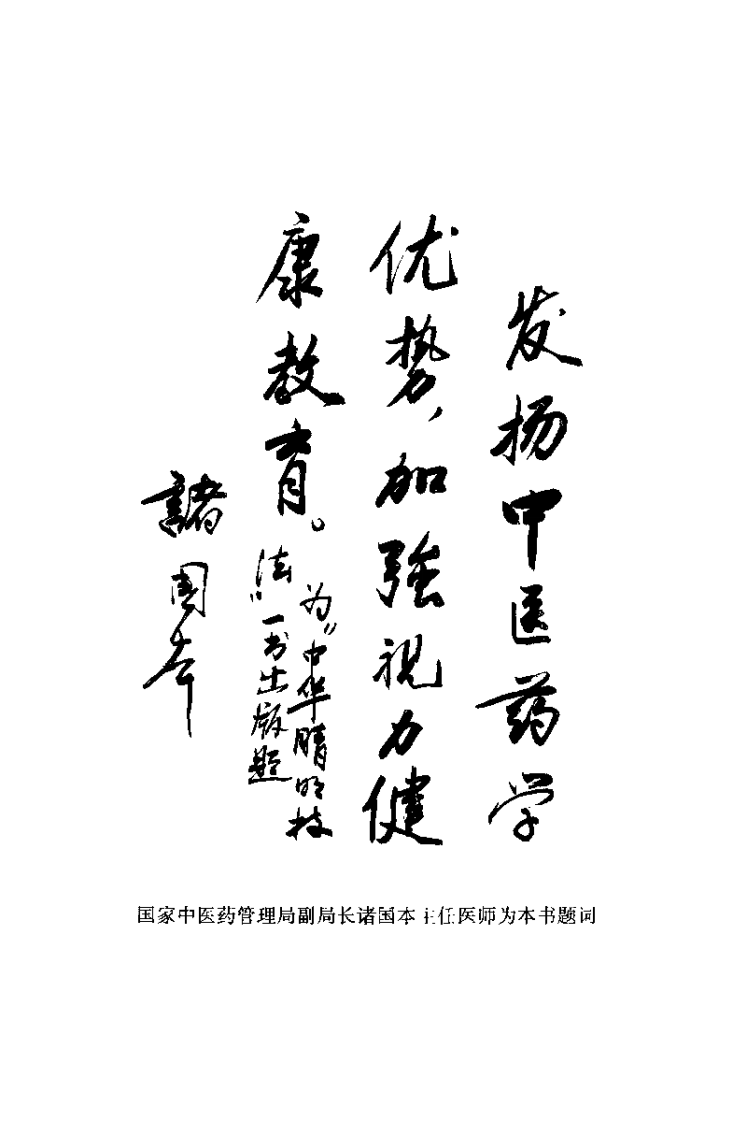 发扬中医药学
优势，加強视力健
康教育。
为“中华睛明技
法”一书出版题
諸国本
国家中医药管理局副局长诸国本主任医师为本书题词